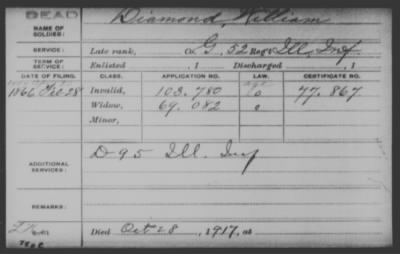 DEAD
NAME OF SOLDIER: Diamond William
SERVICE: Late rank, Co G, 52 Reg't Ill. Inf.
TERM OF SERVICE: Enlisted , 1 Discharged , 1
DATE OF FILING. CLASS. APPLICATION NO. LAW. CERTIFICATE NO.
1866 Feb 28 Invalid, 103.780 77.867
Widow, 69.082
Minor,
ADDITIONAL SERVICES: D 95 Ill. Inf
REMARKS:
Died Oct 28, 1917, at